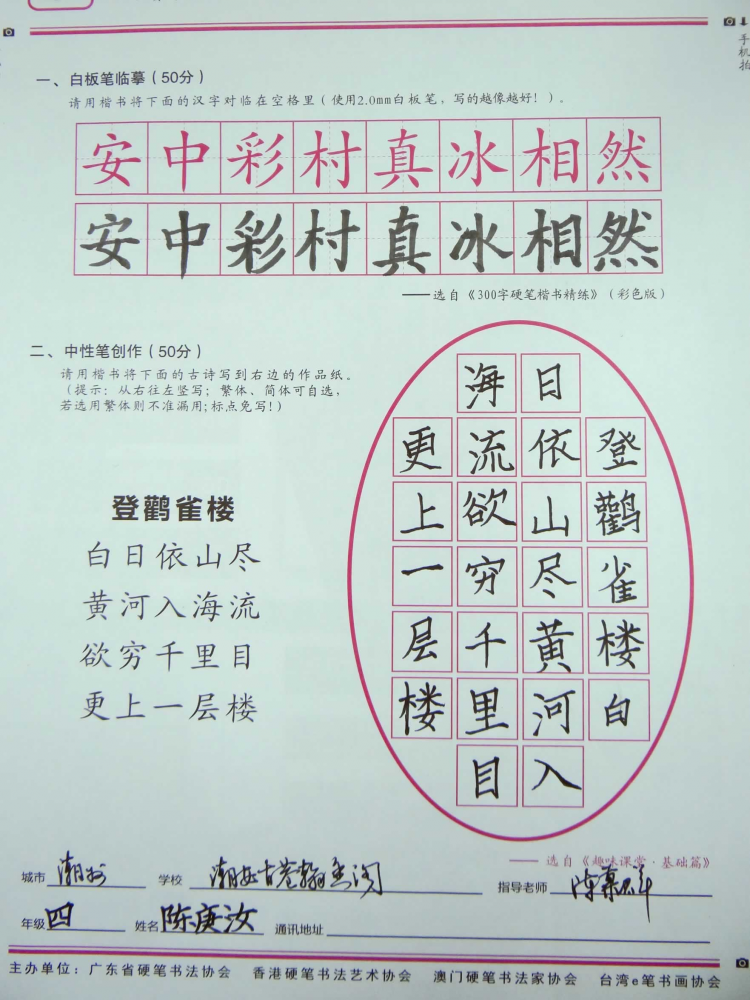 手机拍
一、白板笔临摹（50分）
请用楷书将下面的汉字对临在空格里（使用2.0mm白板笔，写的越像越好！）。
安中彩村真冰相然
安中彩村真冰相然
——选自《300字硬笔楷书精练》（彩色版）
二、中性笔创作（50分）
请用楷书将下面的古诗写到右边的作品纸。
（提示：从右往左竖写；繁体、简体可自选，
若选用繁体则不准漏用；标点免写！）
登鹳雀楼
白日依山尽
黄河入海流
欲穷千里目
更上一层楼
登鹳雀楼白
日依山尽黄河入
海流欲穷千里目
更上一层楼
——选自《趣味课堂·基础篇》
城市 潮州 学校 潮安古巷翰墨阁 指导老师 陈
年级 四 姓名 陈庚汝 通讯地址
主办单位：广东省硬笔书法协会 香港硬笔书法艺术协会 澳门硬笔书法家协会 台湾e笔书画协会